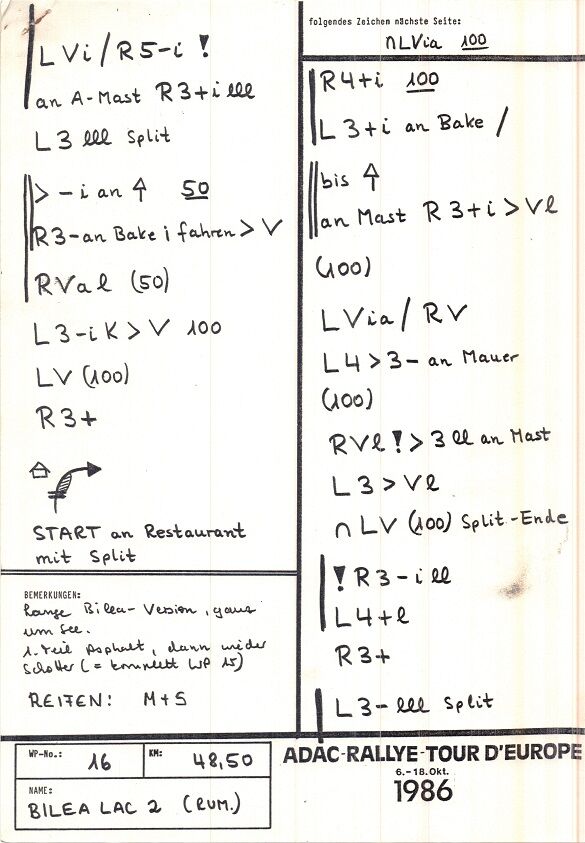 LVi / R5-i !
an A-Mast R3+i lll
L3 lll Split
> -i an ⇑ 50
R3-an Bake i fahren > V
RVal (50)
L3-iK > V 100
LV (100)
R3+
START an Restaurant
mit Split
BEMERKUNGEN:
Lange Bilea-Version, ganz
um See.
1. Teil Asphalt, dann wieder
Schotter (= komplett WP 15)
REIFEN: M+S
folgendes Zeichen nächste Seite:
∩LVia 100
R4+i 100
L3+i an Bake /
bis ⇑
an Mast R3+i > Vl
(100)
LVia / RV
L4 > 3- an Mauer
(100)
RVl ! > 3 ll an Mast
L3 > Vl
∩ LV (100) Split-Ende
! R3-ill
L4+l
R3+
L3-lll Split
WP-No.: 16 KM: 48,50
NAME:
BILEA LAC 2 (RUM.)
ADAC-RALLYE-TOUR D'EUROPE
6.-18. Okt.
1986